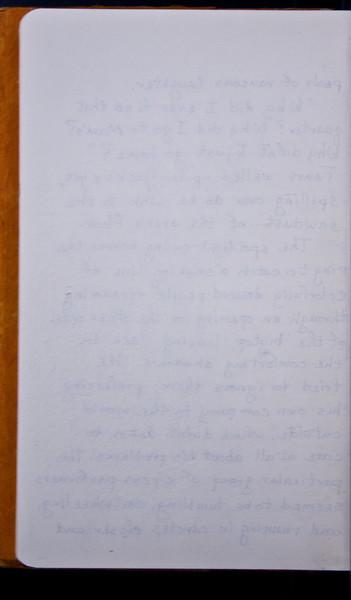 peals of raucous laughter.
"Why did I ever find that
quarter? Why did I go to Mario's?
Why didn't I just go home?"
Tears welled up in his eyes,
spilling over to be sunk in the
sawdust of the arena floor.
The spotlight swung across the
ring to catch a line of
colorfully dressed people streaming
through an opening on the other side
of the bigtop leaving him in
the comforting shadows. He
tried to ignore them, preferring
his own company to the world
outside, which didn't seem to
care at all about his problems. The
particular group of circus performers
seemed to be tumbling, cartwheeling,
and running in circles closer and